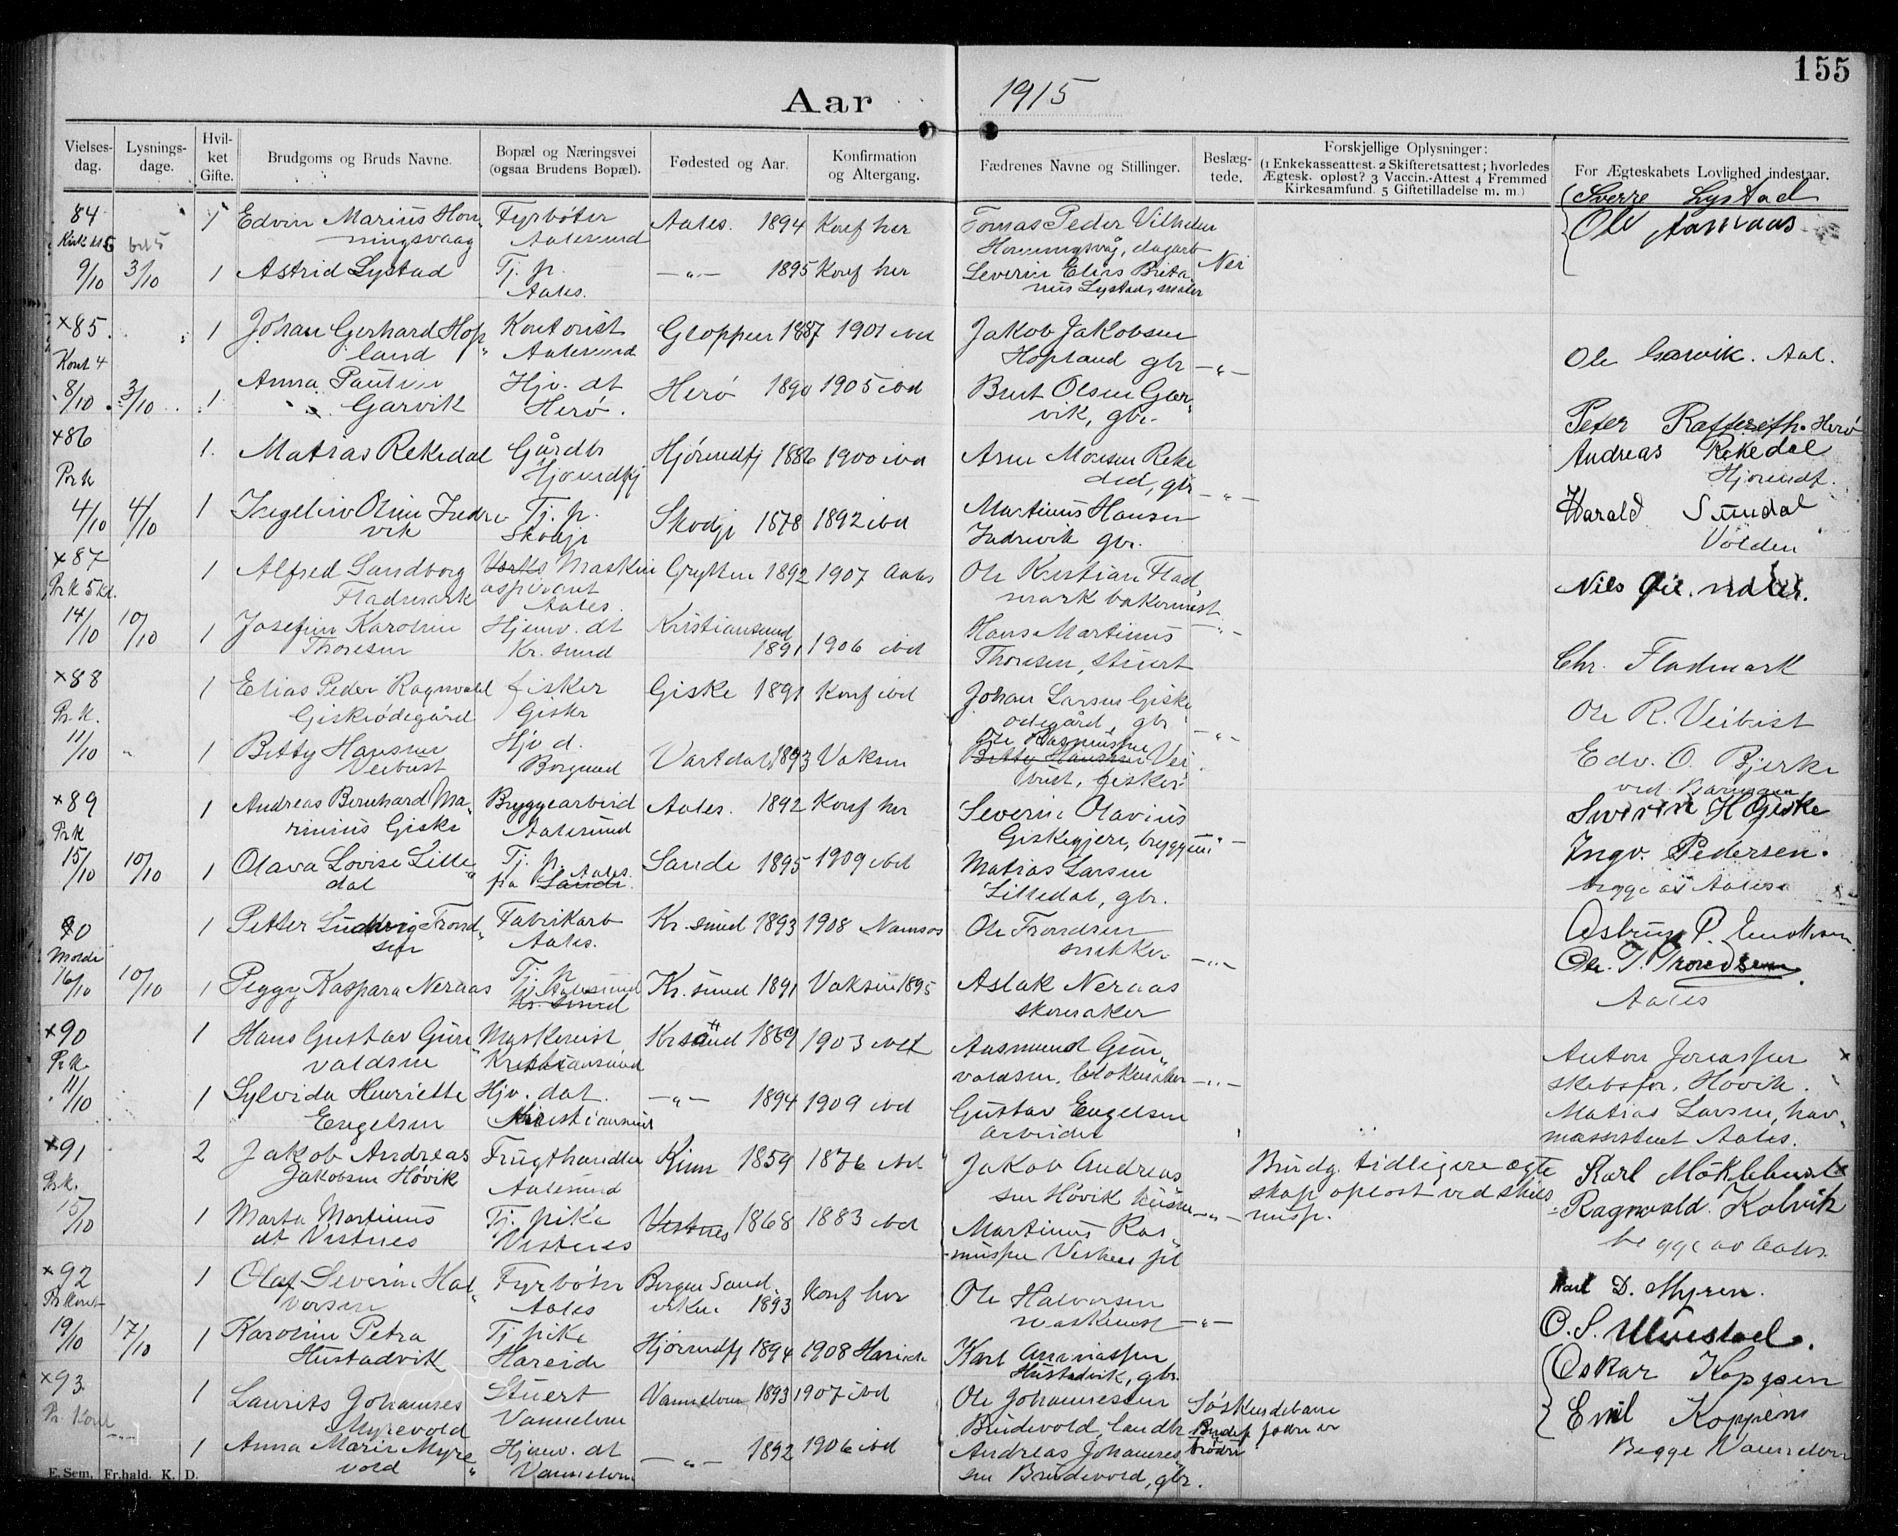 155
Aar 1915
Vielses-dag. Lysnings-dage. Hvil-ket Gifte. Brudgoms og Bruds Navne. Bopæl og Næringsvei (ogsaa Brudens Bopæl). Fødested og Aar. Konfirmation og Altergang. Fædrenes Navne og Stillinger. Beslæg-tede. Forskjellige Oplysninger: (1 Enkekasseattest. 2 Skifteretsattest; hvorledes Ægtesk. opløst? 3 Vaccin.-Attest 4 Fremmed Kirkesamfund. 5 Giftetilladelse m. m.) For Ægteskabets Lovlighed indestaar.
Sverre Lystad
84 1 Edvin Marius Hon- Fyrbøter Aales. 1894 Konf her Tomas Peder Vilhelm Ole Aasnaas
ningsvaag Aalesund Honningsvåg, dagarb
9/10 3/10 1 Astrid Lystad Tj. p. —„— 1895 Konf her Severin Elias Brita Nei
Aales. nus Lystad, maler
×85 1 Johan Gerhard Hop Kontorist Gloppen 1887 1901 ibd Jakob Jakobsen
Kont 4 land Aalesund Hopland gbr —„— Ole Garvik. Aal.
8/10 3/10 1 Anna Pauline Hjv. dt Herø 1890 1905 ibd Bent Olsen Gar-
Garvik Herø. vik, gbr.
Peter Herø
×86 1. Matias Rekedal Gårdbr Hjørundfj 1886 1900 ibd Arne Monsen Reke Andreas Rekedal
Pr k Hjørundfj dal, gbr —„— Hjørundf.
4/10 4/10 1 Ingeline Oline Indre Tj. p. Skodje 1878 1892 ibd Martinus Hansen Harald Sundal
vik Skodje Indrevik gbr. Volden
×87 1 Alfred Sandborg Maskin Grytten 1892 1907 Aales Ole Kristian Flad Nils
Pr k 5 kl. Fladmark aspirant Aales. mark —„—
14/10 10/10 1 Josefine Karoline Hjemv. dt Kristiansund Hans Martinus
Thoresen Kr. sund 1891 1906 ibd Thoresen, stuert Chr. Fladmark
×88 1 Elias Peder Ragnvald fisker Giske 1891 Konf ibd Johan Larsen Giske
Pr. k. Giskeødegård Giske ødegård, gbr —„— Ole R. Veibust
11/10 „ 1 Betty Hansine Hjv d. Vartdal, 1893 Voksen Ole Rasmussen Betty Hansine Vei Edv. O. Bjerke
Veibust Borgund bust, fisker
×89 1 Andreas Bernhard Ma- Bryggearbeid Aales. 1892 Konf her Severin Olavius Severin H Giske
Pr k rinius Giske Aalesund Giskegjerde, —„—
15/10 10/10 1 Olava Lovise Lille Tj. p. Aales. Sande 1895 1909 ibd Matias Larsen Ingv. Pedersen.
dal fra Sande. Lilledal, gbr. begge av Aales
90 1 Petter Ludvig Trond- Fabrikarb Kr. sund 1893 1908 Namsos Ole Trondsen
Molde sen Aales. snekker —„— Ole. T. Trondsen.
16/10 10/10 1 Peggy Kaspara Neraas Tj. p Aalesund Kr. sund Kr. sund 1891 Voksen 1895 Aslak Neraas Aales
skomaker
×90 1 Hans Gustav Gun Maskinist Krsund 1889 1903 ibd Aasmund Gun- Anton Jonassen ×
Pr k. valdsen Kristiansund valdsen, blokmaker —„— skibsfør. Høvik.
11/10 1 Sylvida Henriette Hjv. dat. —„— 1894 1909 ibd Gustav Engelsen Matias Larsen, hav-
Engelsen Kristiansund arbeider neassistent Aales.
×91 2 Jakob Andreas Frugthandler Kinn 1859 1876 ibd Jakob Andreas Brudg. tidligere ægte Karl Møklebust ×
Pr k. Jakobsen Høvik Aalesund sen Høvik husm —„— skap opløst ved skils
15/10 1 Marta Martinus Tj. pike Vestnes 1868 1883 ibd Martinus Ras- misp. Ragnvald. Kolvik
dt Vestnes Vestnes mussen Vestnes begge av Aales.
×92 1 Olaf Severin Hal- Fyrbøter Bergen Sand- Konf her Ole Halvorsen Karl D. Myren.
Pr Kont vorsen Aales viken 1893 maskinist —„—
19/10 17/10 1 Karoline Petra Tj pike Hjørundfj 1894 1908 Hareide Karl Ananiassen O. S. Ulvestad.
Hustadvik Hareide Hustadvik, gbr.
Oskar Koppen
×93 1 Laurits Johannes Stuert Vannelven 1893 1907 ibd Ole Johannessen Søskendebarn
Pr. Kont Myrevold Vannelven Brudevold, landh Brudef fædre er Emil Koppen
1 Anna Marie Myre Hjemv. dt —„— 1892 1906 ibd Andreas Johannes brødre Begge Vannelven
vold Vannelven sen Brudevold, gbr.
E. Sem, Fr.hald. K. D.